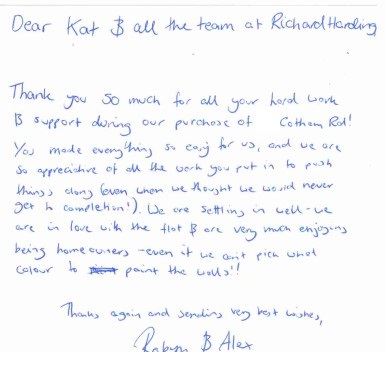 Dear Kat & all the team at Richard Harding
Thank you so much for all your hard work
& support during our purchase of Cotham Rd!
You made everything so easy for us, and we are
so appreciative of all the work you put in to push
things along (even when we thought we would never
get to completion!). We are settling in well - we
are in love with the flat & are very much enjoying
being homeowners - even if we can't pick what
colour to paint the walls!!
Thanks again and sending very best wishes,
Robyn & Alex